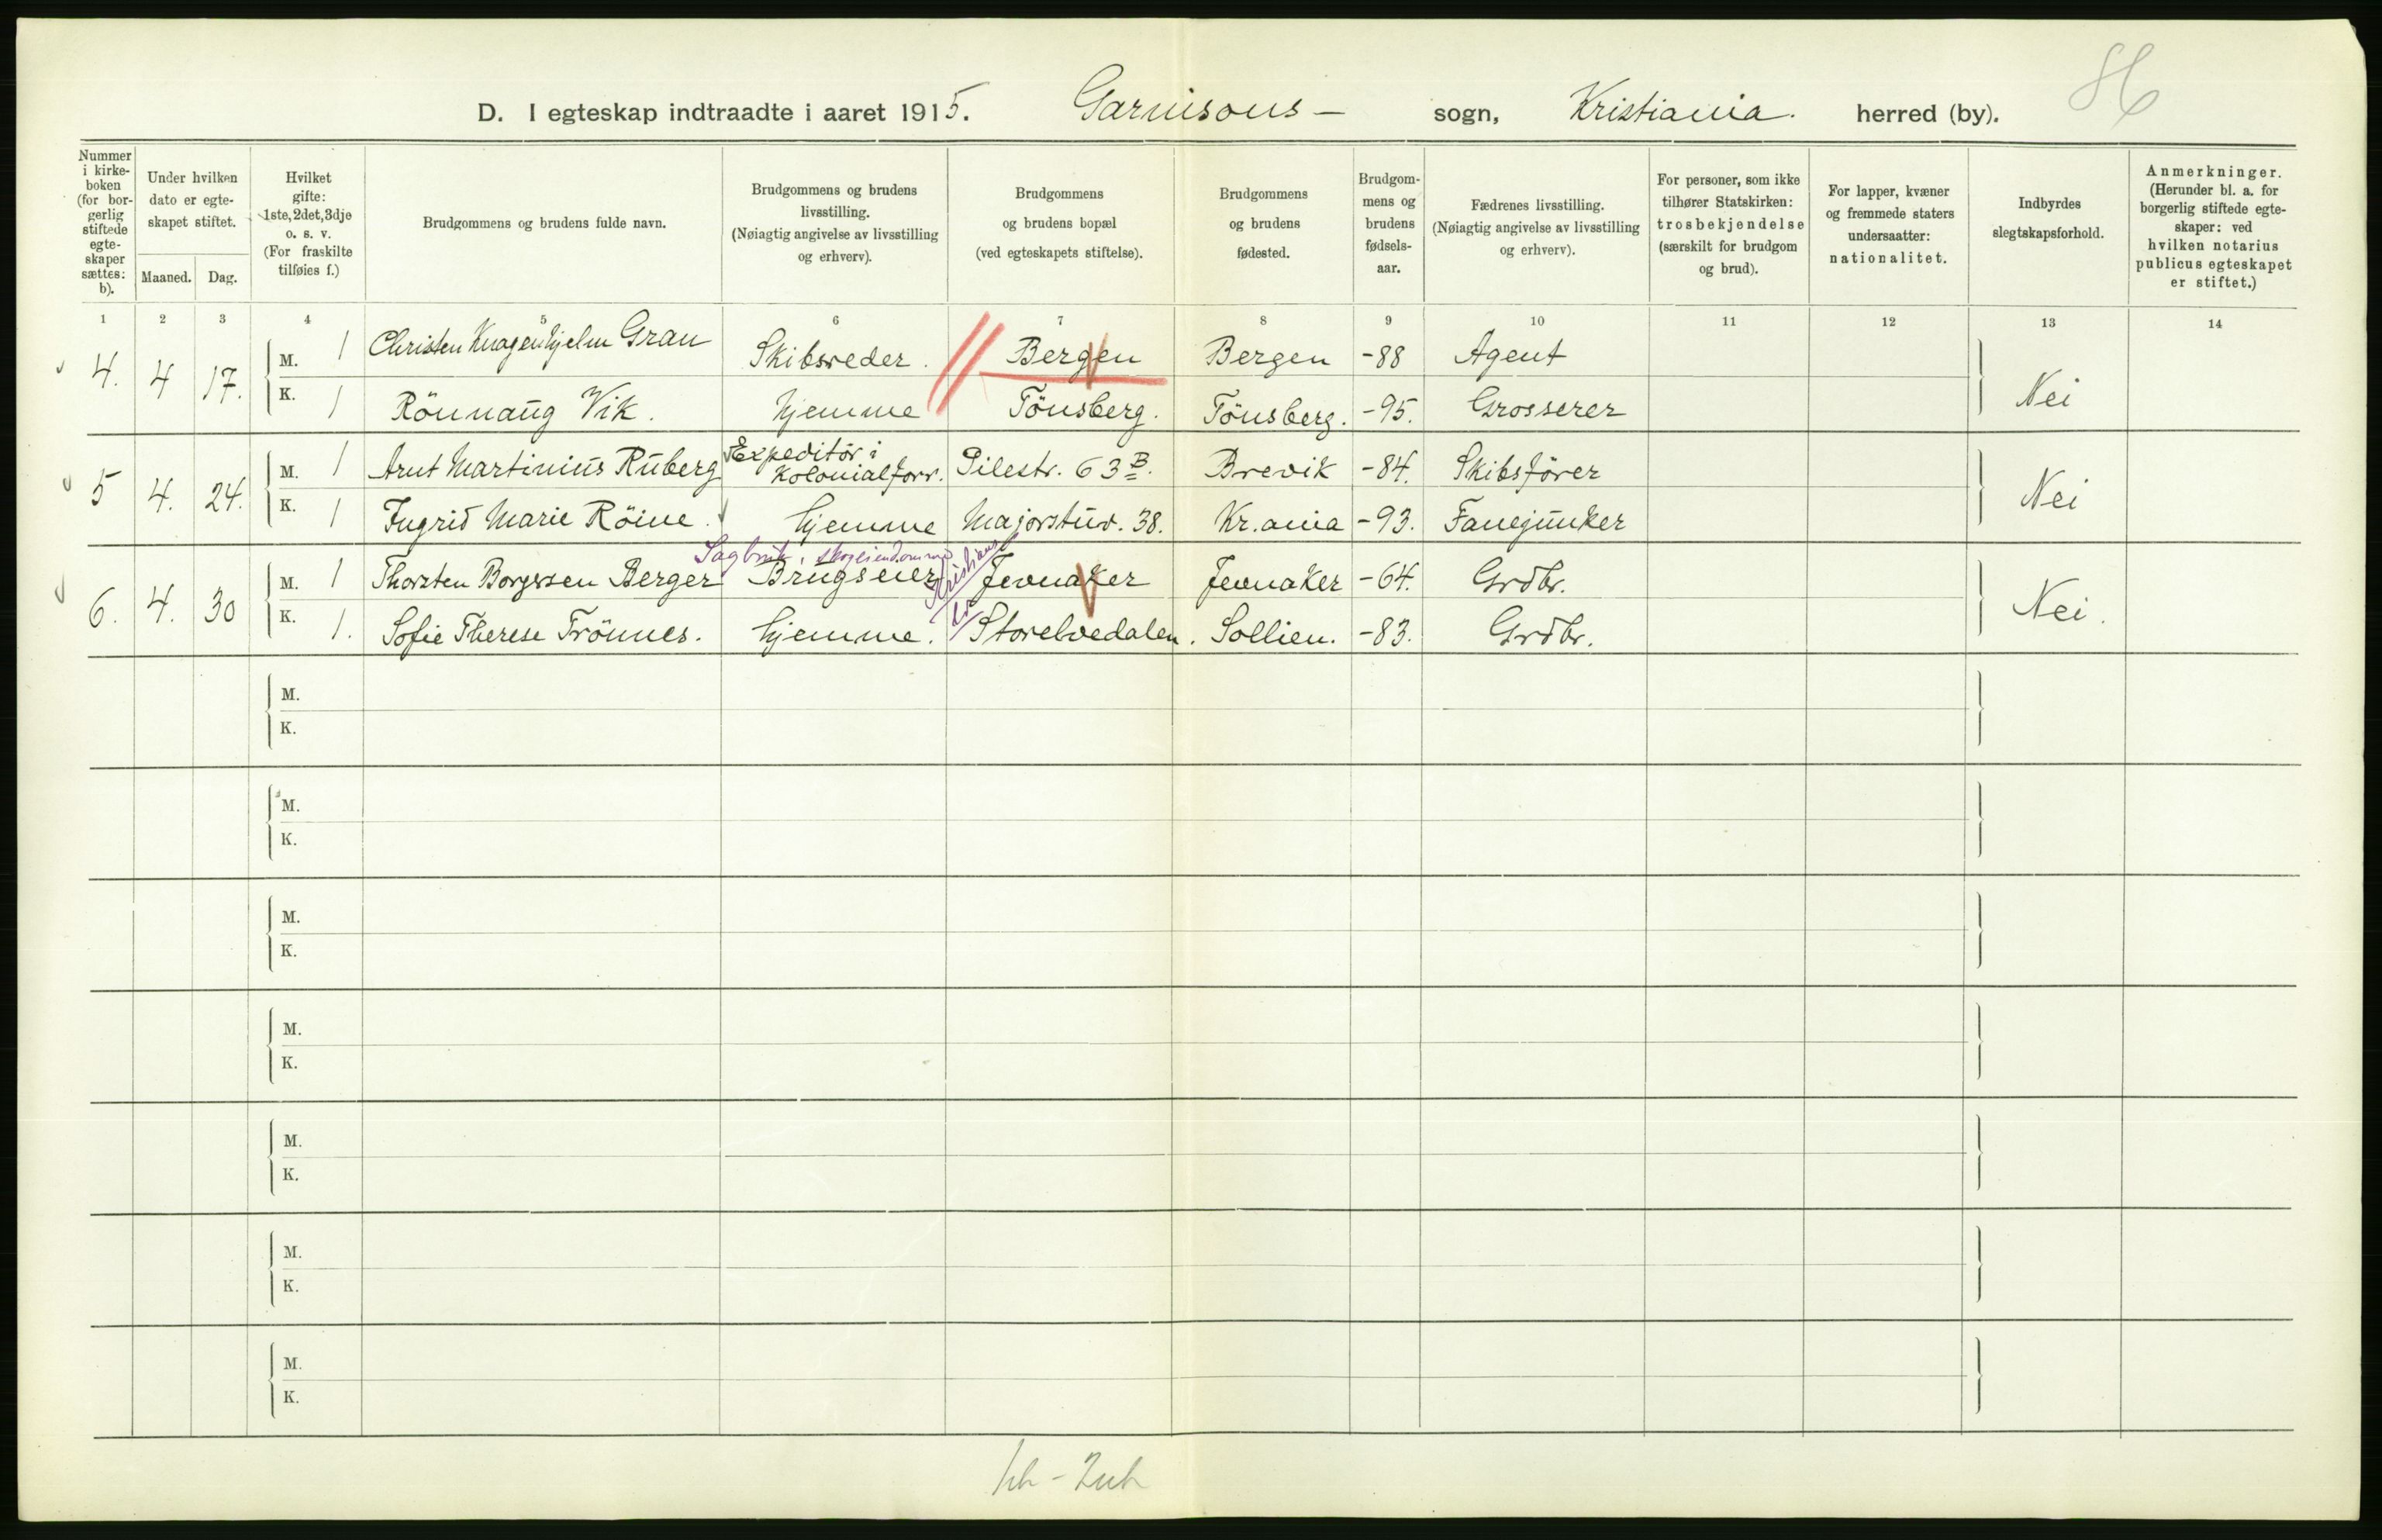 86
D. I egteskap indtraadte i aaret 1915. Garnisons- sogn, Kristiania. herred (by).
Nummer i kirkeboken (for borgerlig stiftede egteskaper sættes: b).
Under hvilken dato er egteskapet stiftet.
Maaned. Dag.
Hvilket gifte: 1ste, 2det, 3dje o. s. v. (For fraskilte tilføies f.)
Brudgommens og brudens fulde navn.
Brudgommens og brudens livsstilling. (Nøiagtig angivelse av livsstilling og erhverv).
Brudgommens og brudens bopæl (ved egteskapets stiftelse).
Brudgommens og brudens fødested.
Brudgommens og brudens fødselsaar.
Fædrenes livsstilling. (Nøiagtig angivelse av livsstilling og erhverv).
For personer, som ikke tilhører Statskirken: trosbekjendelse (særskilt for brudgom og brud).
For lapper, kvæner og fremmede staters undersaatter: nationalitet.
Indbyrdes slegtskapsforhold.
Anmerkninger. (Herunder bl. a. for borgerlig stiftede egteskaper: ved hvilken notarius publicus egteskapet er stiftet.)
1 2 3 4 5 6 7 8 9 10 11 12 13 14
4. 4 17. M. 1 Christen Knagenhjelm Gran Skibsreder. Bergen Bergen -88 Agent Nei
K. 1 Rönnaug Vik. hjemme Tönsberg. Tönsberg. -95. Grosserer
5 4. 24. M. 1 Arnt Martinius Ruberg Expeditör i Kolonialforr. Pilestr. 63 B. Brevik -84. Skibsförer Nei
K. 1 Ingrid Marie Röine. hjemme Majorstuv. 38. Kr.ania -93. Fanejunker
Sagbruk, skogeiendomme
Kristians
6. 4. 30 M. 1 Thorsten Borgersen Berger Brugseier Jevnaker Jevnaker -64. Grdbr. Nei.
K. 1. Sofie Therese Trönnes. hjemme. Storelvedalen. Sollien. -83. Grdbr.
M.
K.
M.
K.
M.
K.
M.
K.
M.
K.
M.
K.
M.
K.